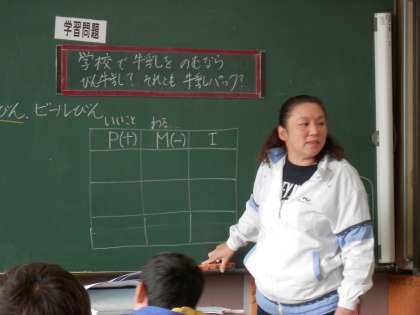 学習問題
学校で牛乳をのむなら
びん牛乳？それとも牛乳パック？
びん、ビールびん
いいこと わる
P(+) M(-) I